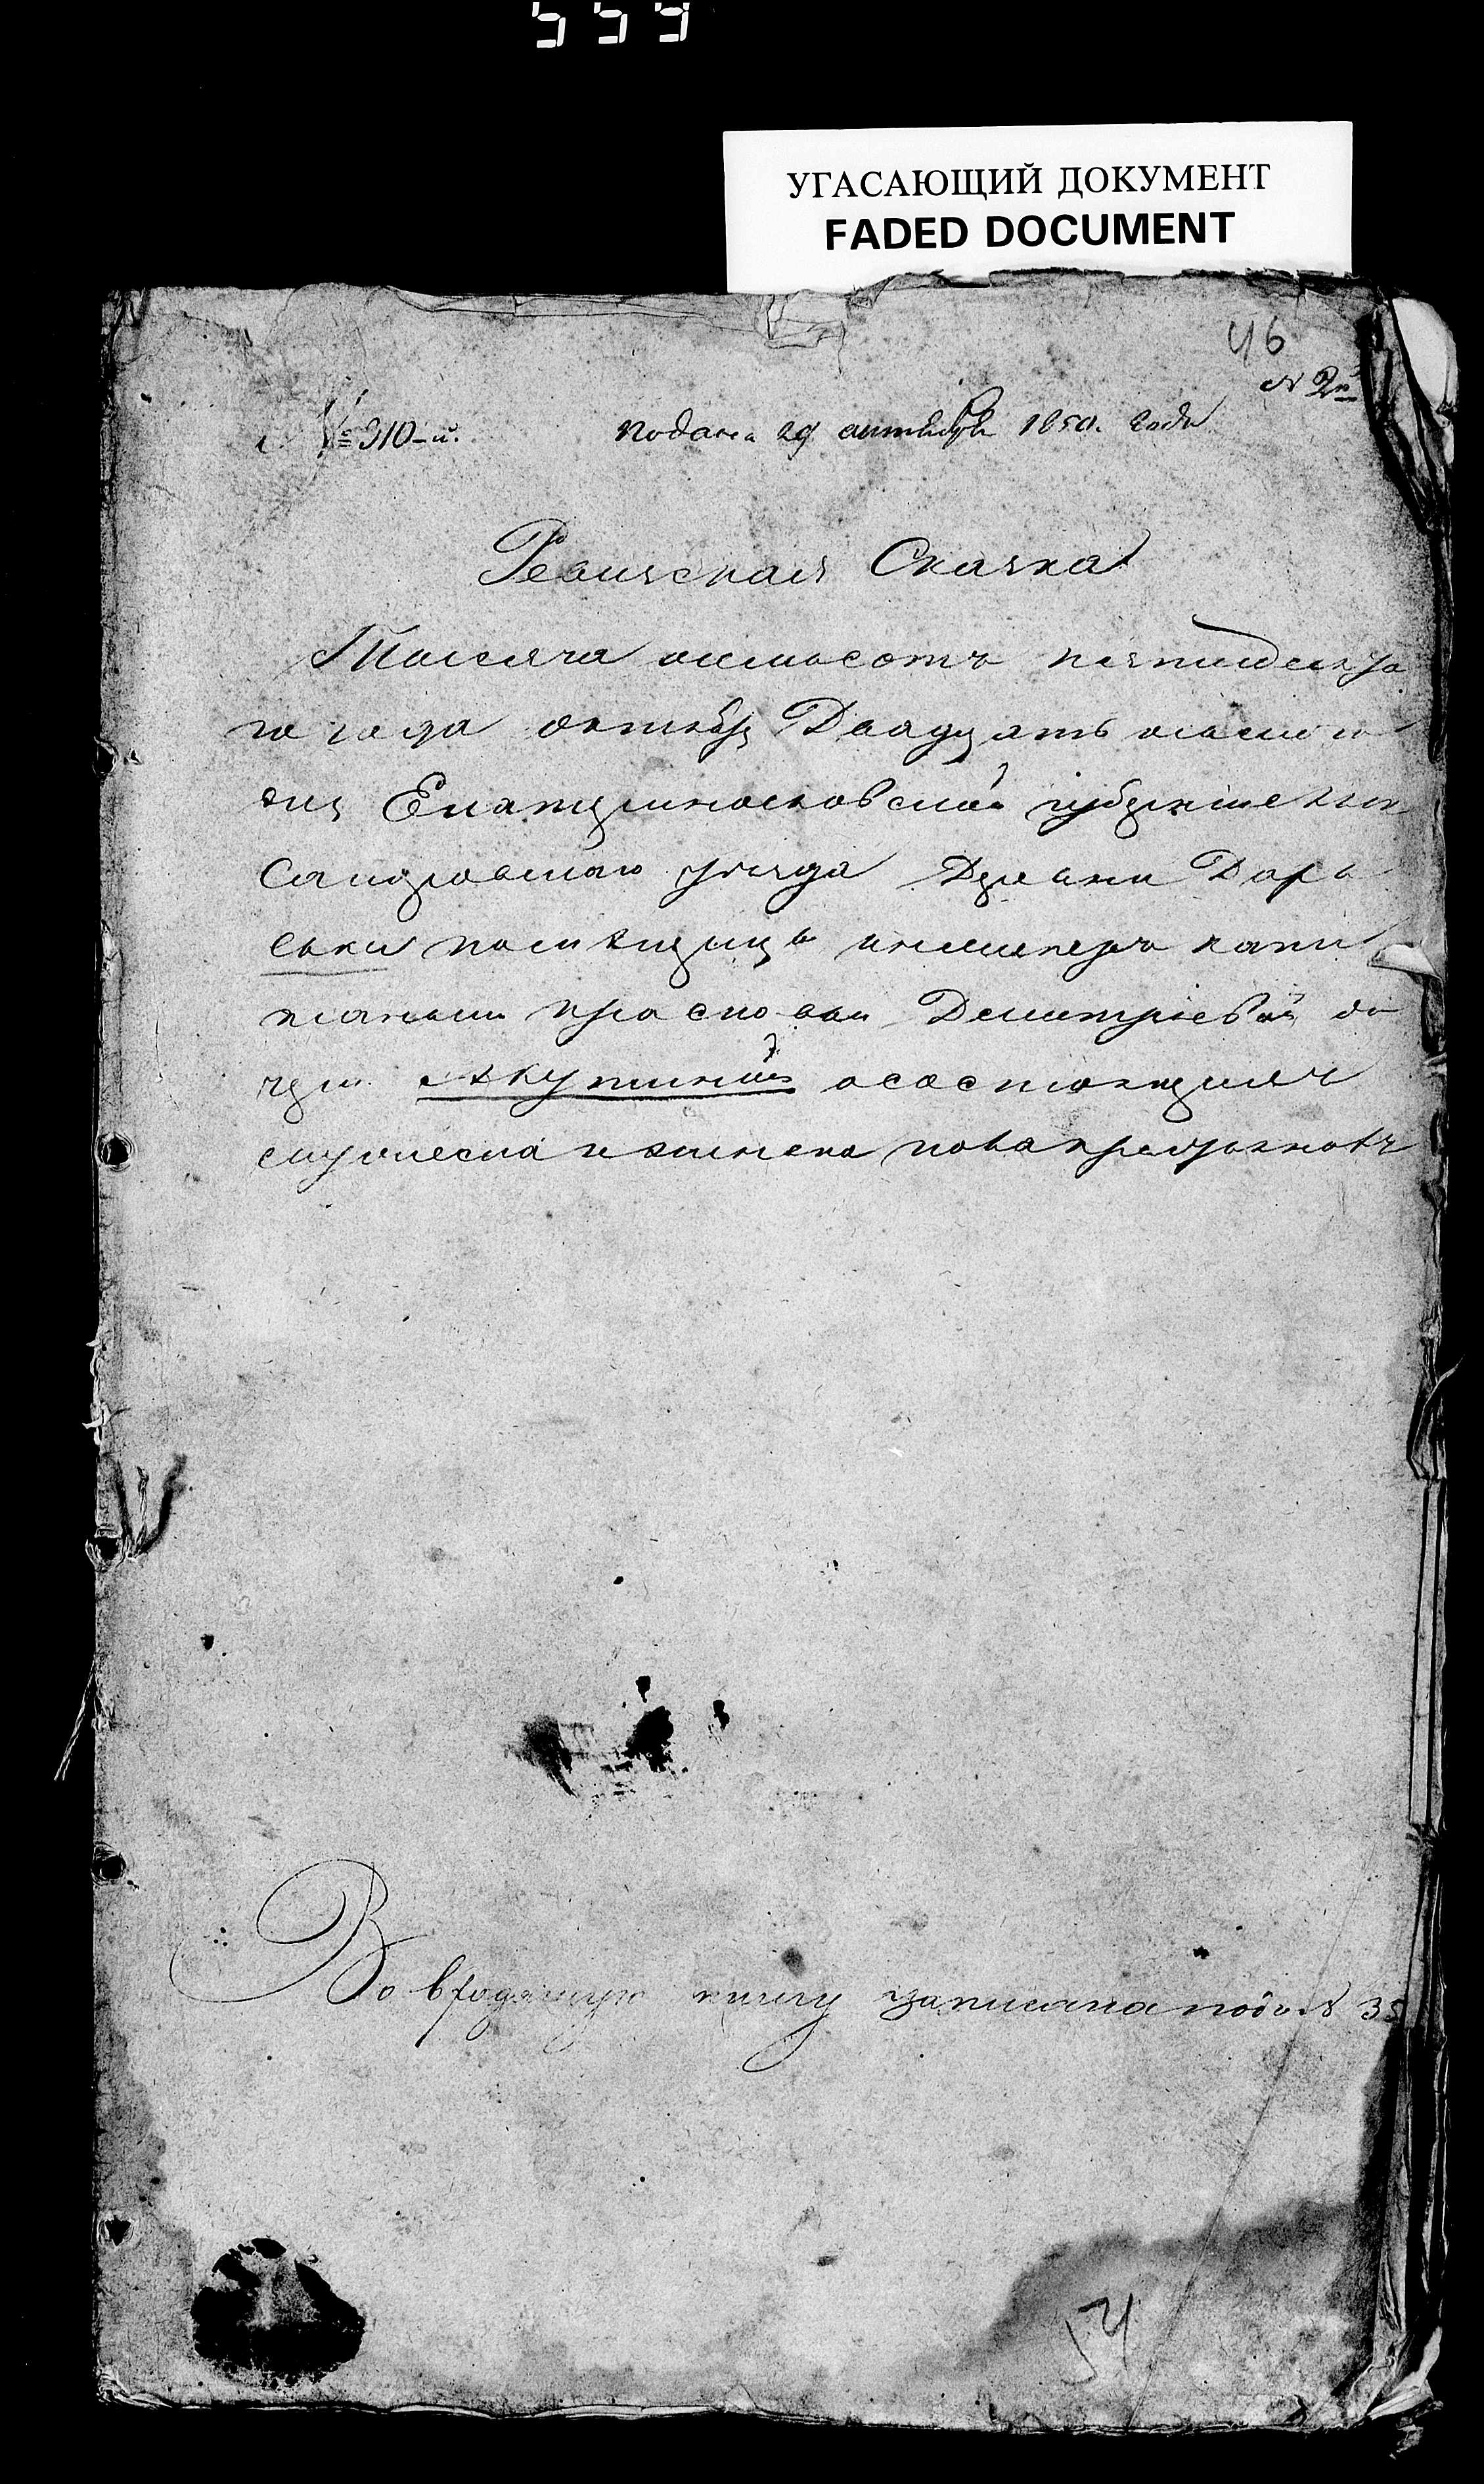 559
УГАСАЮЩИЙ ДОКУМЕНТ
FADED DOCUMENT
46
№ 2й
№ 310-й. Подана 29 октября 1850. года
Ревизская Сказка
Тысяча восмьсотъ пятидеся
го года октября Двадцать осьмого
дня Екатеринославской губернии
Саидровскаго уезда Деревни Дарь
евки помещицы инженеръ капи
танши Прасковьи Дмитріевой до
чери Акутиной осостоящихъ
мужеска и женска пола
Во входящую книгу записана подъ № 35
54